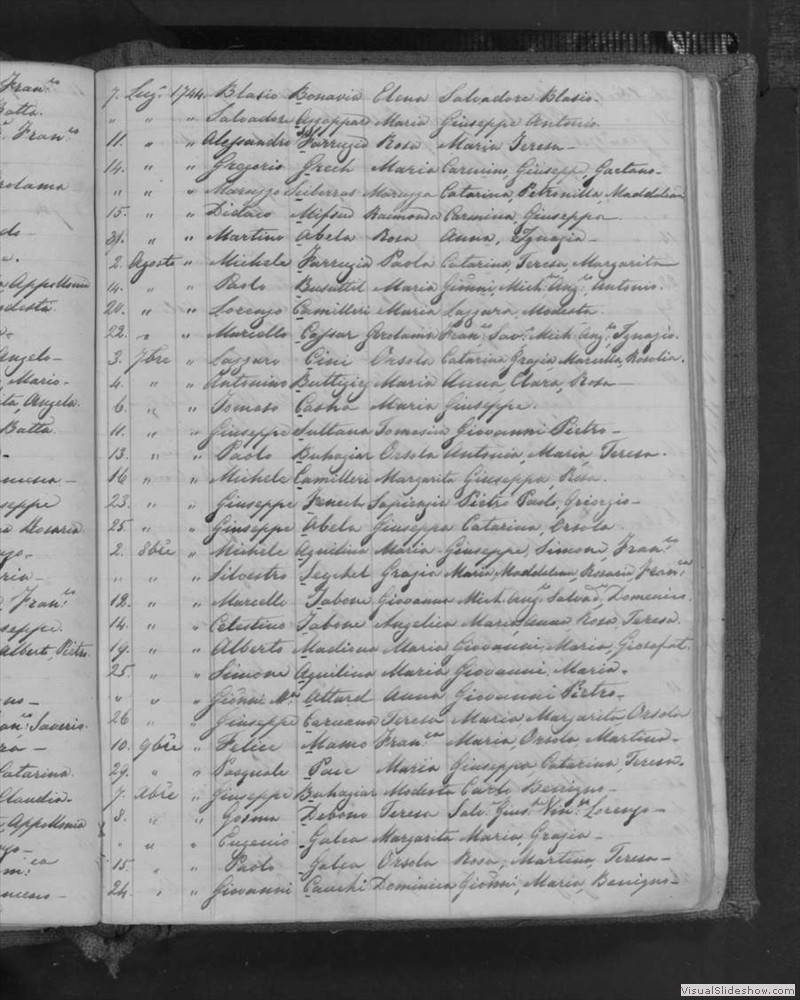 Fran.co
Batta.
Fran.co
Gerolama
Appollonia
Modesta.
Angelo-
Mario-
Angela.
Batta.
Giuseppe
Rosaria
Maria-
Fran.co
Giuseppe.
Alberto, Pietro.
Saverio.
Catarina.
Claudia-
Appollonia
7. Lug.o 1744. Blasio Bonavia Elena Salvadore Blasio.
" " " Salvadore Azzoppard Maria Giuseppe Antonio.
11. " " Alessandro Farrugia Rosa Maria Teresa-
14. " " Gregorio Grech Maria Carmino, Giuseppe, Gaetano-
" " " Maruzzo Sciberras Maruzza Catarina, Petronilla, Maddalena
15. " " Didaco Mifsud Raimonda Carmina, Giuseppa
31. " " Martino Abela Rosa Anna, Ignazia-
2. Agosto " Michele Farrugia Paola Catarina, Teresa, Margarita
14. " " Paolo Busuttil Maria Gionni, Mich: Ang:o Antonio.
20. " " Lorenzo Camilleri Maria Lazzara, Modesta.
22. " " Marcello Cassar Gerolama Fran.co Sav.o Mich: Ang:o Ignazio.
3. 7bre " Lazzaro Cini Orsola Catarina Grazia, Marulla, Rosolia.
4. " " Antonino Buttigieg Maria Anna, Clara, Rosa-
6. " " Tomaso Casha Maria Giuseppe.
11. " " Giuseppe Sultana Tomasia Giovanni Pietro-
13. " " Paolo Buhagiar Orsola Antonia, Maria, Teresa.
16 " " Michele Camilleri Margarita Giuseppa, Rosa.
23. " " Giuseppe Fenech Pietro Paolo, Griorgio-
25 " " Giuseppe Abela Giuseppa Catarina, Orsola.
2. 8bre " Michele Aquilina Maria Giuseppe, Simone Fran.co
" " " Silvestro Seychel Grazia Maria Maddalena, Rosaria Fran.ca
12. " " Marcello Tabone Giovanna Mich: Ang:o Salvad.e Domenico.
14. " " Celestino Tabone Angelica Marianna Rosa, Teresa.
19. " " Alberto Madiona Maria Giovanni, Maria, Giosefat.
25. " " Simone Aquilina Maria Giovanni, Maria.
" " " Gionni M.a Attard Anna Giovanni Pietro.
26 " " Giuseppe Caruana Teresa Maria Margarita, Orsola
10. 9bre " Felice Mamo Fran.ca Maria, Orsola, Martina.
29. " " Pasquale Pace Maria Giuseppa, Catarina, Teresa.
7. Xbre " Giuseppe Buhagiar Modesta Carlo Benigno-
8. " " Gosma Debono Teresa Salv.e Gius.e Vin.o Lorenzo-
" " " Eugenio Galea Margarita Maria, Grazia-
15. " " Paolo Galea Orsola Rosa, Martina, Teresa-
24. " " Giovanni Cauchi Dominica Gionni, Maria, Benigno-
VisualSlideshow.com